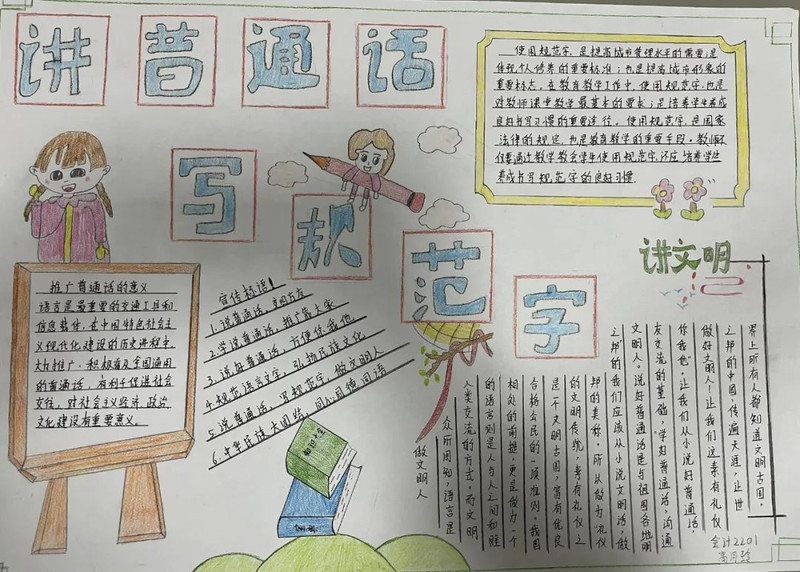 讲普通话
写规范字
使用规范字,是提高城市管理水平的需要;是
体现个人修养的重要标准;也是提高城市形象的
重要标志。在教育教学工作中,使用规范字,也是
对教师课堂教学最基本的要求;是培养学生养成
良好书写习惯的重要途径。使用规范字,是国家
法律的规定,也是教育教学的重要手段。教师不
但要通过教学教会学生使用规范字,还应培养学生
养成书写规范字的良好习惯。
推广普通话的意义
语言是最重要的交通工具和
信息载体。在中国特色社会主
义现代化建设的历史进程中,
大力推广、积极普及全国通用
的普通话,有利于促进社会
交往,对社会主义经济、政治、
文化建设有重要意义。
宣传标语!
1.说普通话,迎四方友
2.学说普通话,推广靠大家
3.说好普通话,方便你我他
4.规范语言文字,弘扬民族文化
5.说普通话,写规范字,做文明人
6.中华民族大团结,同心同德同语
讲文明
做文明人
众所周知,语言是
人类交流的方式。而文明
的语言则是人与人之间和睦
相处的前提,更是做为一个
合格公民的一项准则。我国
是一个文明古国,富有优良
的文明传统,素有礼仪之
邦的美称。所以做为礼仪
之邦的我们应该从小说文明话,做
文明人。说好普通话是与祖国各地朋
友交流的基础,学好普通话,沟通
你我他。让我们从小说好普通话,
做好文明人!让我们这素有礼仪
之邦的中国,传遍天涯,让世
界上所有人都知道文明古国。
会计2201